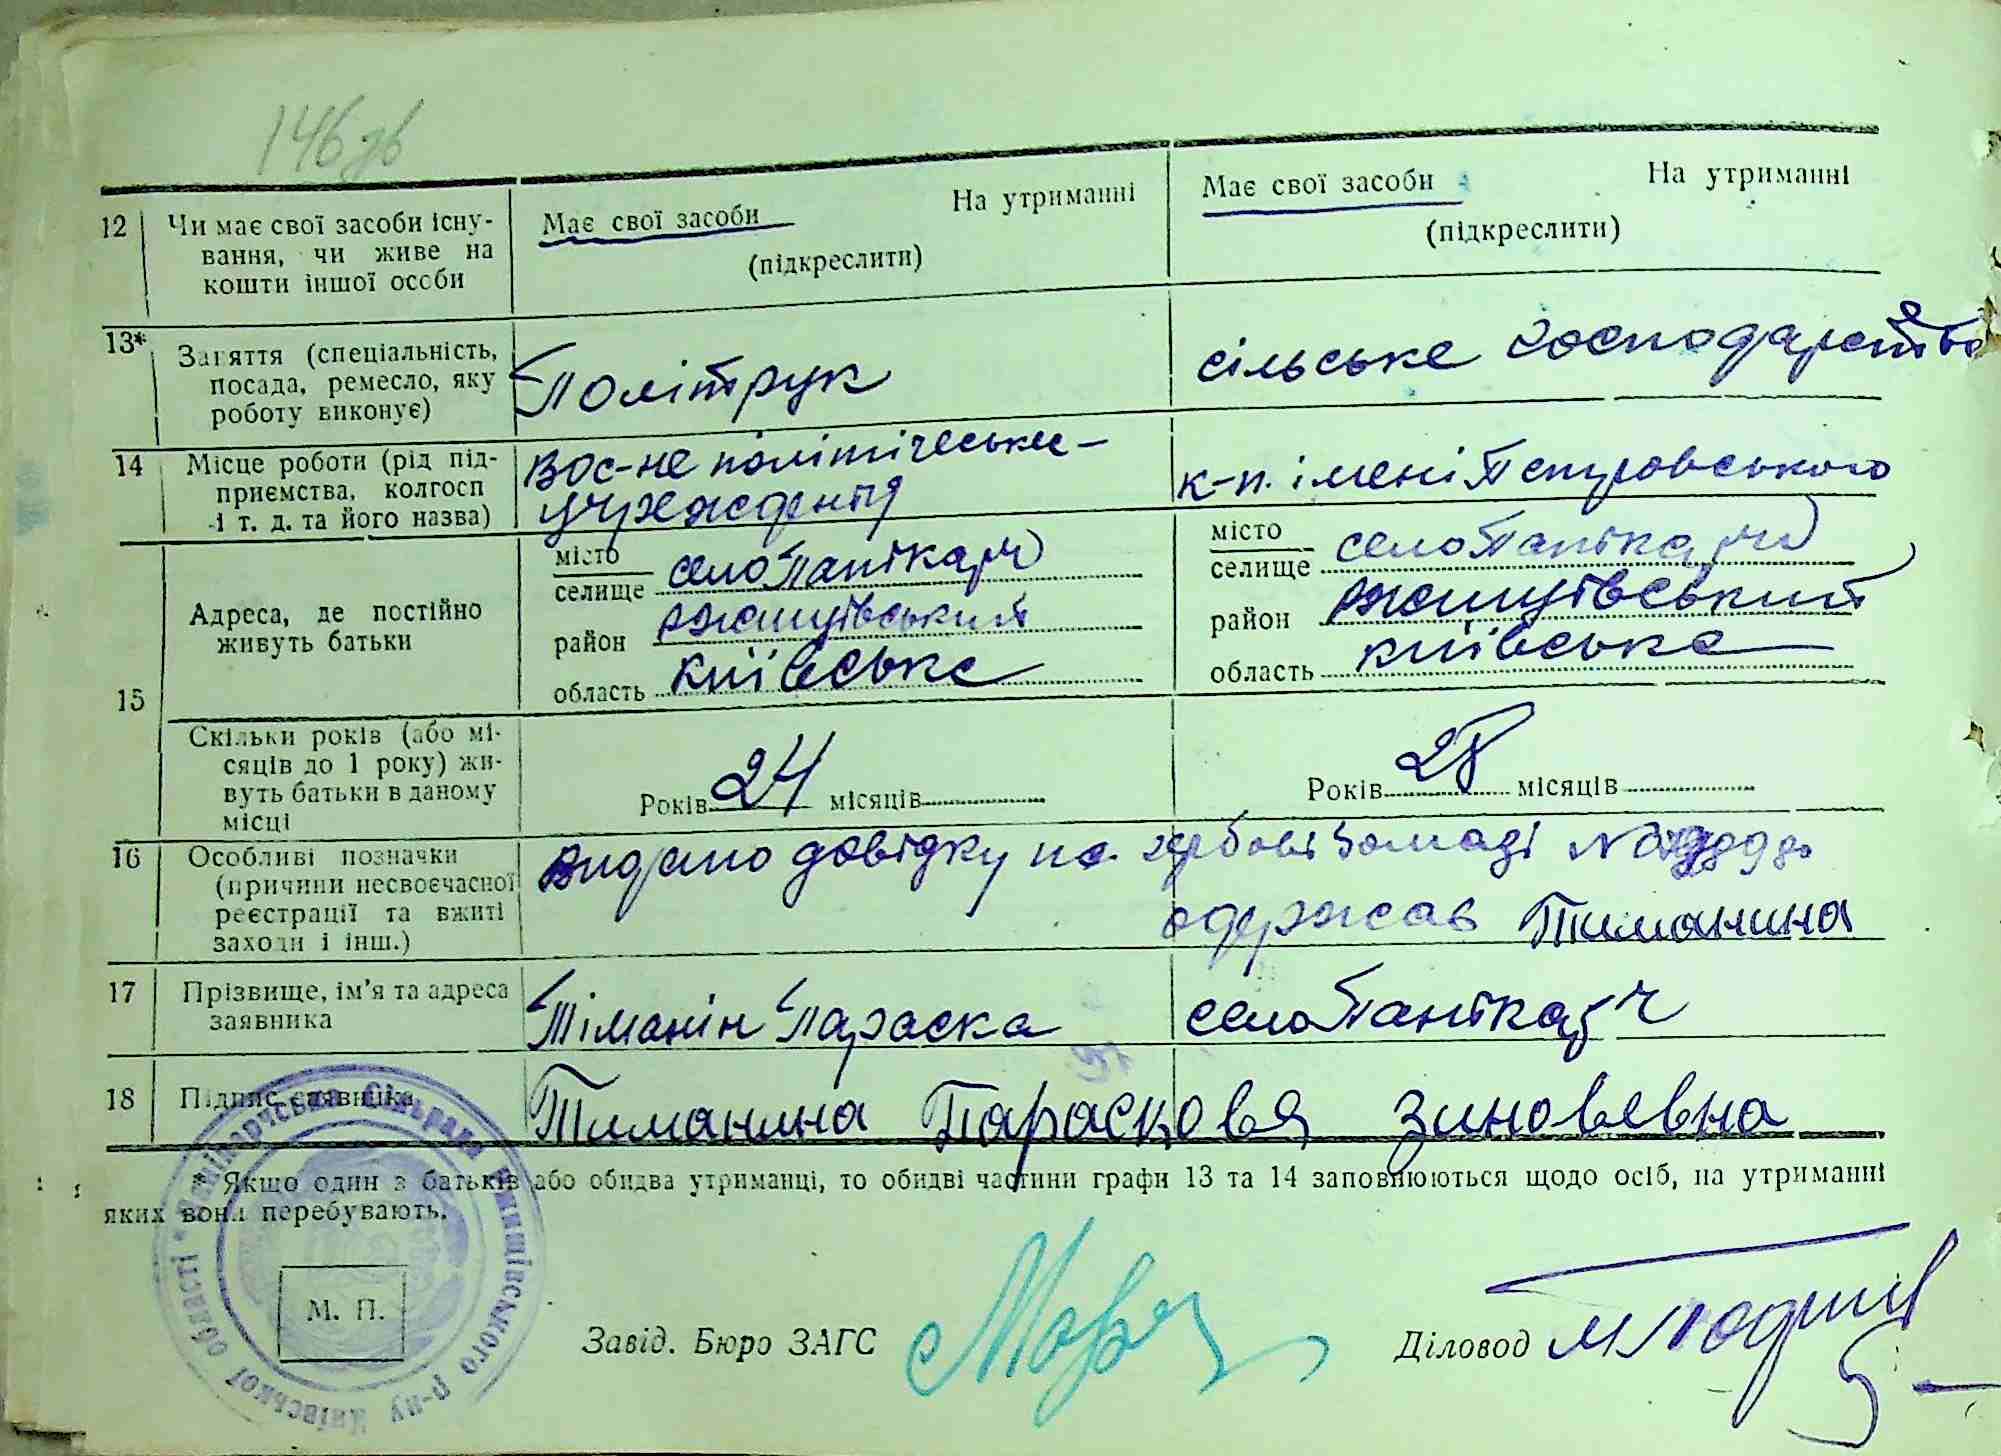 146 зв
12 Чи має свої засоби існу-
вання, чи живе на
кошти іншої особи
Має свої засоби На утриманні
(підкреслити)
Має свої засоби На утриманні
(підкреслити)
13* Заняття (спеціальність,
посада, ремесло, яку
роботу виконує)
Політрук
сільське господарство
14 Місце роботи (рід під-
приємства, колгосп
і т. д. та його назва)
Воє-не політічеське-
к-п. імені Петровського
15 Адреса, де постійно
живуть батьки
місто
селище село Панікарч
район ржищівський
область київське
місто
селище село Панікарчі
район ржищівський
область київська
Скільки років (або мі-
сяців до 1 року) жи-
вуть батьки в даному
місці
Років 24 місяців
Років 28 місяців
16 Особливі позначки
(причини несвоєчасної
реєстрації та вжиті
заходи і інш.)
видано довідку на гербові
одержав Тиманина
17 Прізвище, ім'я та адреса
заявника
Тіманін Параска село Панікарч
18 Підпис заявника
Тиманина Парасковя Зиновевна
* Якщо один з батьків або обидва утриманці, то обидві частини графи 13 та 14 заповнюються щодо осіб, на утриманні
яких вони перебувають.
М. П.
Завід. Бюро ЗАГС
Діловод